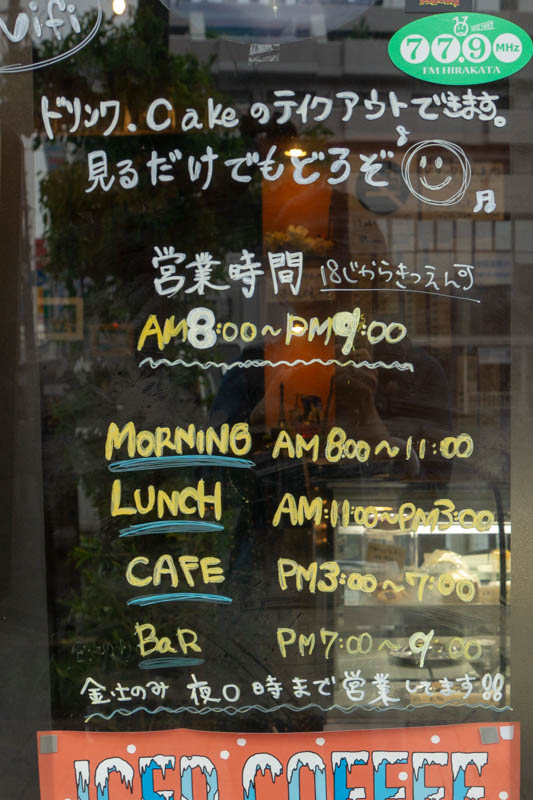 wifi
77.9 MHz
FM HIRAKATA
ドリンク、Cakeのテイクアウトできます。
見るだけでもどうぞ♪
営業時間 18じからきつえん可
AM8:00~PM9:00
MORNING AM 8:00~11:00
LUNCH AM:11:00~PM3:00
CAFE PM3:00~7:00
BaR PM7:00~9:00
金・土のみ 夜0時まで営業してます!!
ICED COFFEE